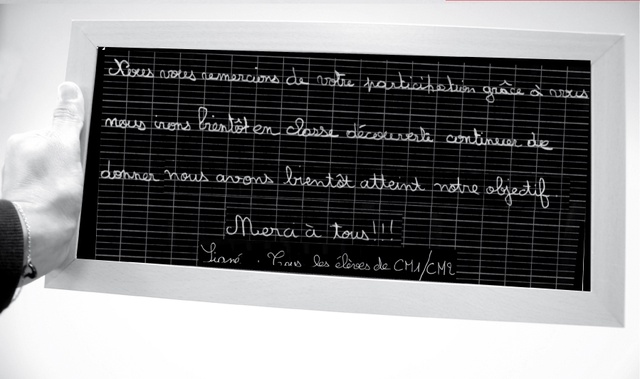 Nous vous remercions de votre participation grâce à vous
nous irons bientôt en classe découverte continuer de
donner nous avons bientôt atteint notre objectif.
Merci à tous!!!
Signé . Tous les élèves de CM1/CM2